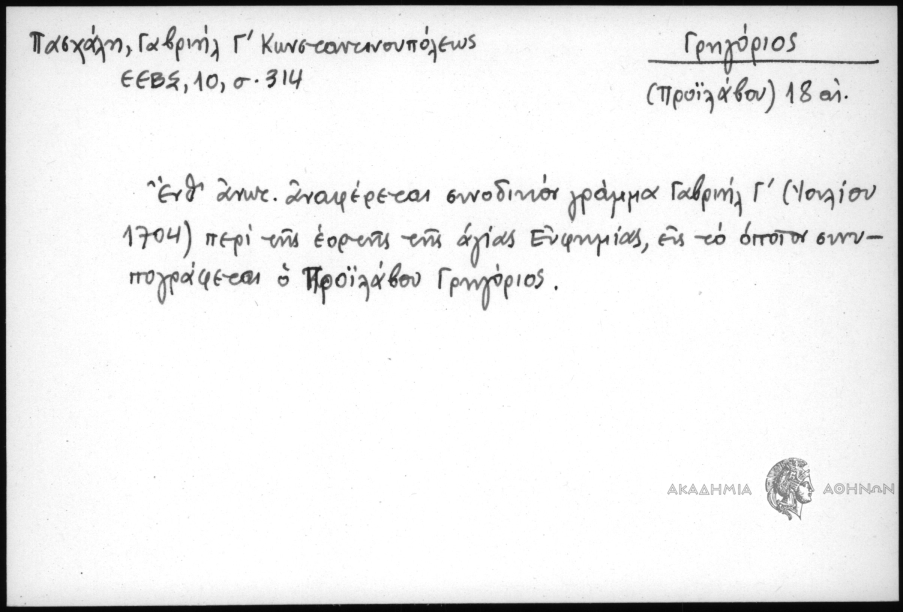 Πασχάλη, Γαβριήλ Γ' Κωνσταντινουπόλεως
ΕΕΒΣ, 10, σ. 314
Γρηγόριος
(Προϊλάβου) 18 αἰ.
Ἔνθ' ἄνωτ. ἀναφέρεται συνοδικὸν γράμμα Γαβριήλ Γ' (Ἰουλίου
1704) περὶ τῆς ἑορτῆς τῆς ἁγίας Εὐφημίας, εἰς τὸ ὁποῖον συνυ-
πογράφεται ὁ Προϊλάβου Γρηγόριος.
ΑΚΑΔΗΜΙΑ ΑΘΗΝΩΝ